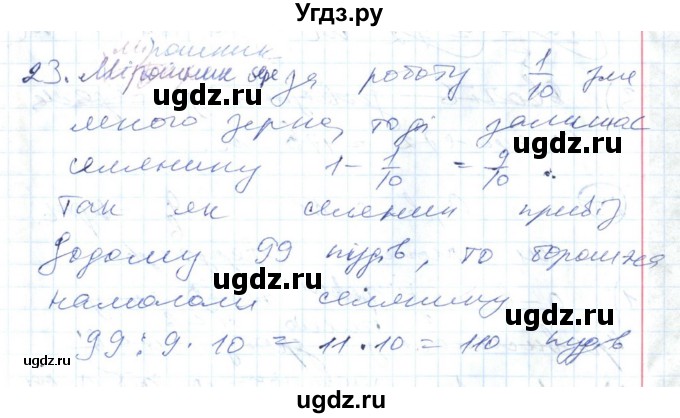 Угдз.ру
мірошник
23. Мірошник бере за роботу 1/10 зме
ugdz.ru ugdz.ru
леного зерна, тоді залишає
селянину 1 - 1/10 = 9/10.
ugdz.ru ugdz.ru
Так як селянин привіз
додому 99 пудів, то борошна
ugdz.ru ugdz.ru
намололи селянину
99 : 9 · 10 = 11 · 10 = 110 пудів
ugdz.ru ugdz.ru ugdz.ru
ugdz.ru